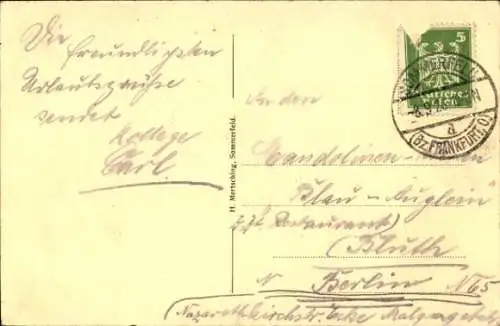 Die
freundlichsten
Urlaubsgrüße
sendet
Kollege
Carl.
H. Mertsching, Sommerfeld.
5
SOMMERFELD
9.2
a
(Bz. FRANKFURT, O.)
An den
Mandolinen-
Blau-Äuglein
z. Zt. Restaurant
(Bluth)
N Berlin N65
Nazarethkirchstr. Ecke